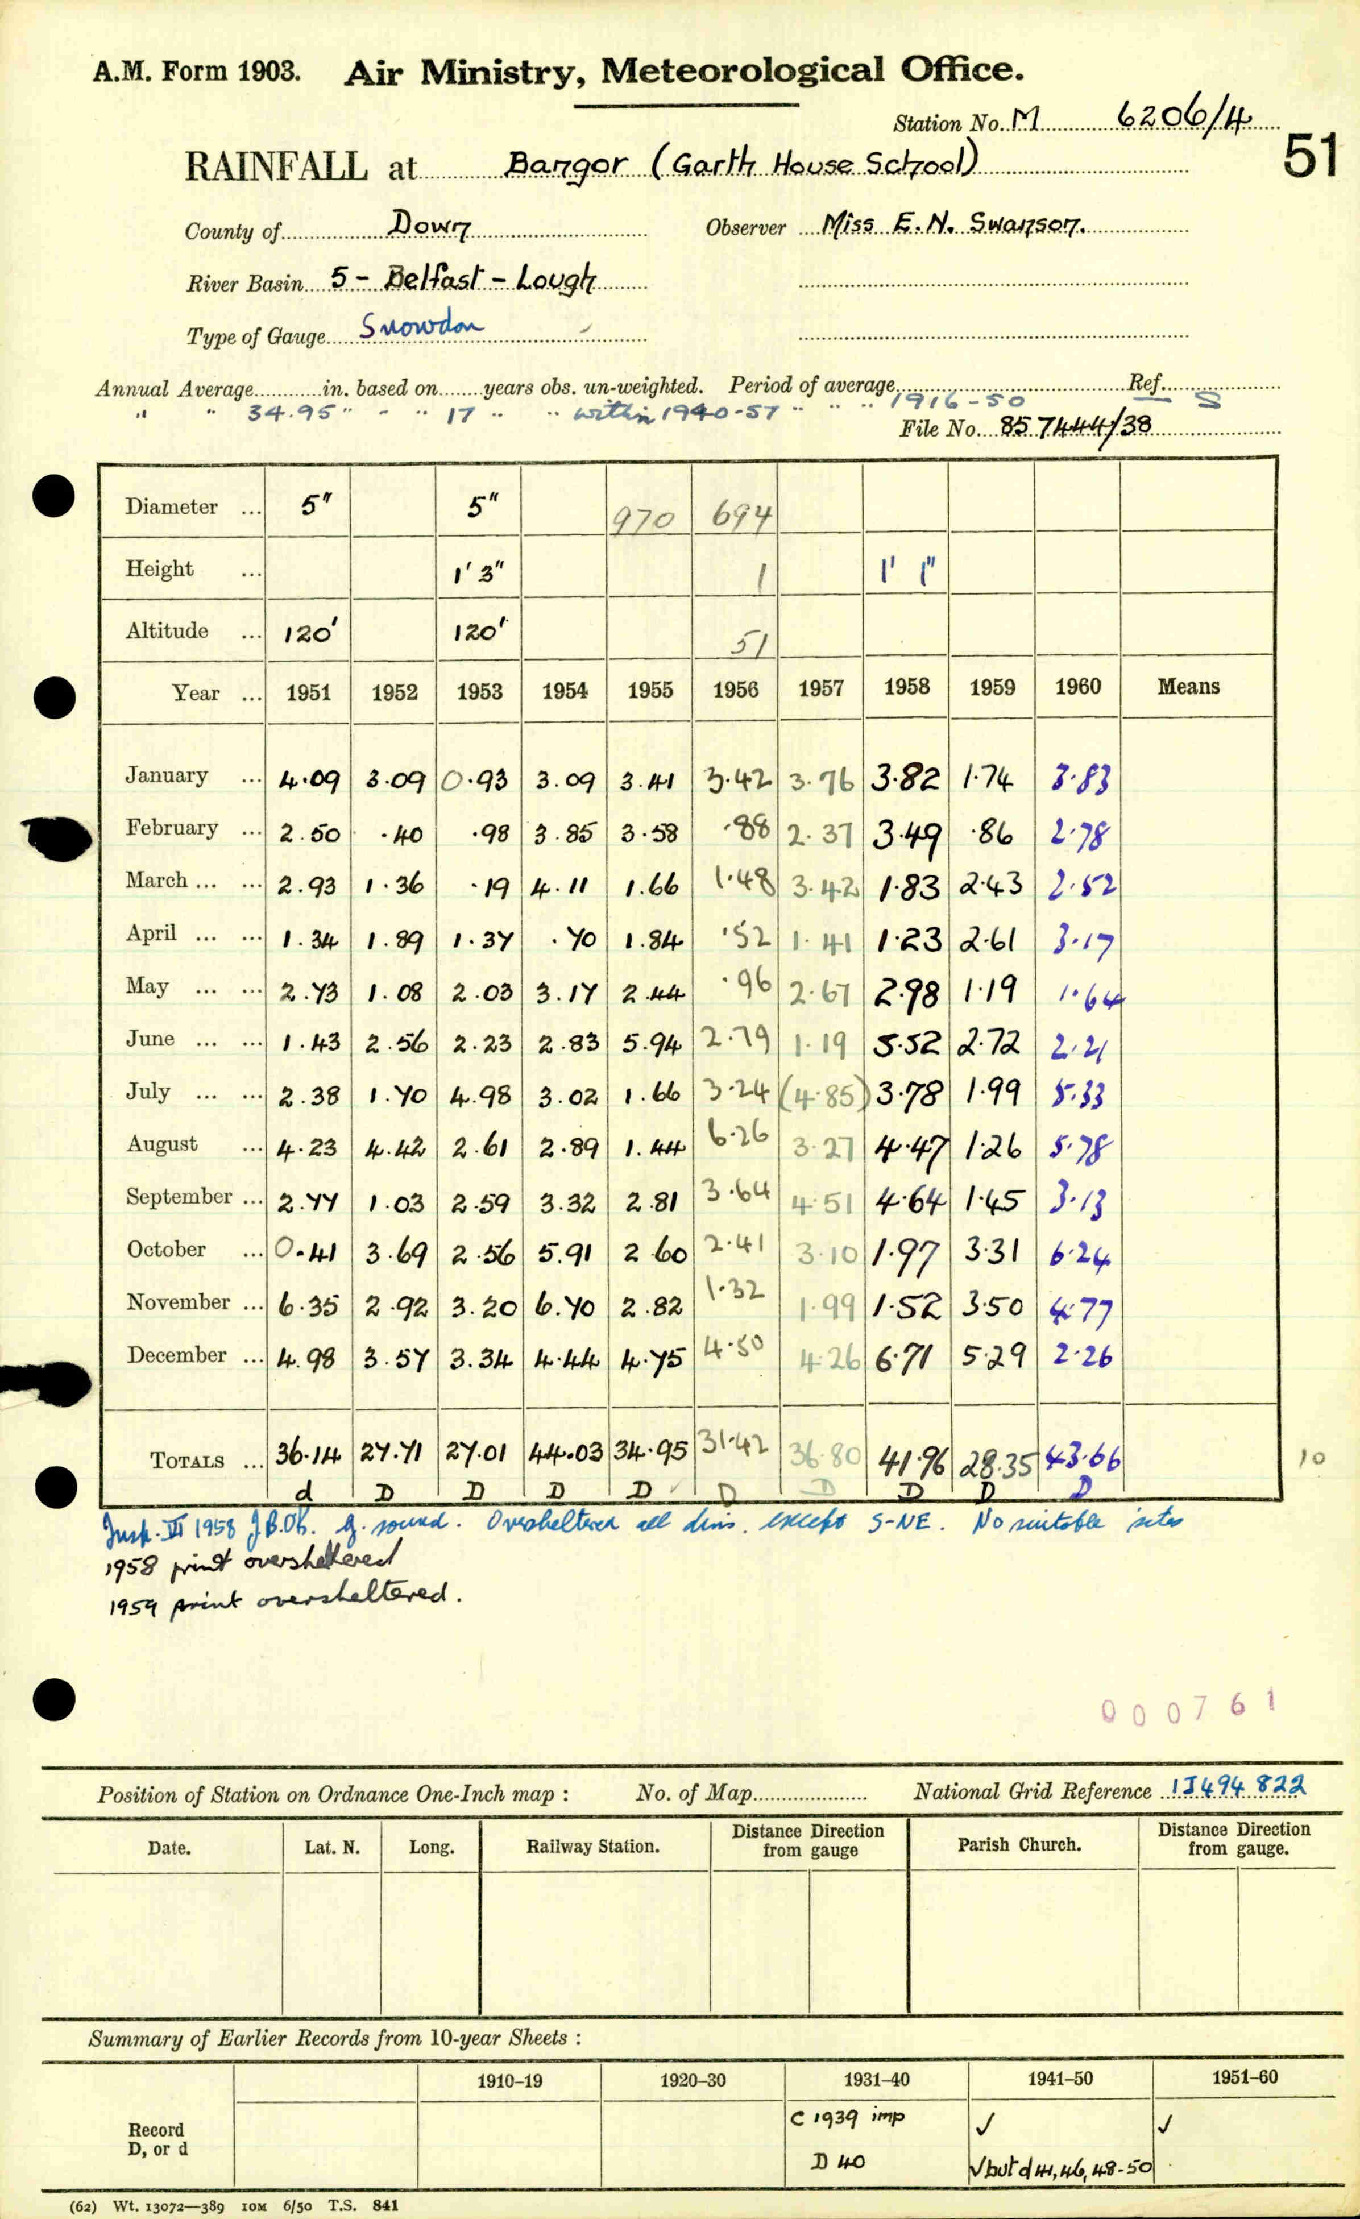 A.M. Form 1903. Air Ministry, Meteorological Office.
Station No. M 6206/4
51
RAINFALL at Bangor (Garth House School)
County of Down Observer Miss E. N. Swanson.
River Basin 5 - Belfast - Lough
Type of Gauge Snowdon
Annual Average in. based on years obs. un-weighted. Period of average Ref.
" " 34.95 " - " 17 " " within 1940-57 " " " 1916-50 S
File No. 857444/38
Diameter ... 5" 5" 970 694
Height ... 1' 3" 1 1' 1"
Altitude ... 120' 120' 51
Year ... 1951 1952 1953 1954 1955 1956 1957 1958 1959 1960 Means
January ... 4.09 3.09 0.93 3.09 3.41 3.42 3.76 3.82 1.74 3.83
February ... 2.50 .40 .98 3.85 3.58 .88 2.37 3.49 .86 2.78
March ... ... 2.93 1.36 .19 4.11 1.66 1.48 3.42 1.83 2.43 2.52
April ... ... 1.34 1.89 1.37 .70 1.84 .52 1.41 1.23 2.61 3.17
May ... ... 2.73 1.08 2.03 3.17 2.44 .96 2.67 2.98 1.19 1.64
June ... ... 1.43 2.56 2.23 2.83 5.94 2.79 1.19 5.52 2.72 2.21
July ... ... 2.38 1.70 4.98 3.02 1.66 3.24 (4.85) 3.78 1.99 5.33
August ... 4.23 4.42 2.61 2.89 1.44 6.26 3.27 4.47 1.26 5.78
September ... 2.77 1.03 2.59 3.32 2.81 3.64 4.51 4.64 1.45 3.13
October ... 0.41 3.69 2.56 5.91 2 60 2.41 3.10 1.97 3.31 6.24
November ... 6.35 2.92 3.20 6.70 2.82 1.32 1.99 1.52 3.50 4.77
December ... 4.98 3.57 3.34 4.44 4.75 4.50 4.26 6.71 5.29 2.26
TOTALS ... 36.14 27.71 27.01 44.03 34.95 31.42 36.80 41.96 28.35 43.66 10
d D D D D ✓ D D D D D
Insp. VI 1958 g. sound. Oversheltered all dirns. except S-NE. No suitable sites
1958 print oversheltered
1959 print oversheltered.
000761
Position of Station on Ordnance One-Inch map : No. of Map National Grid Reference 1J494 822
Date. Lat. N. Long. Railway Station. Distance Direction from gauge Parish Church. Distance Direction from gauge.
Summary of Earlier Records from 10-year Sheets :
1910-19 1920-30 1931-40 1941-50 1951-60
Record C 1939 imp ✓ ✓
D, or d D 40 ✓ but d 41, 46, 48-50
(62) Wt. 13072—389 10M 6/50 T.S. 841